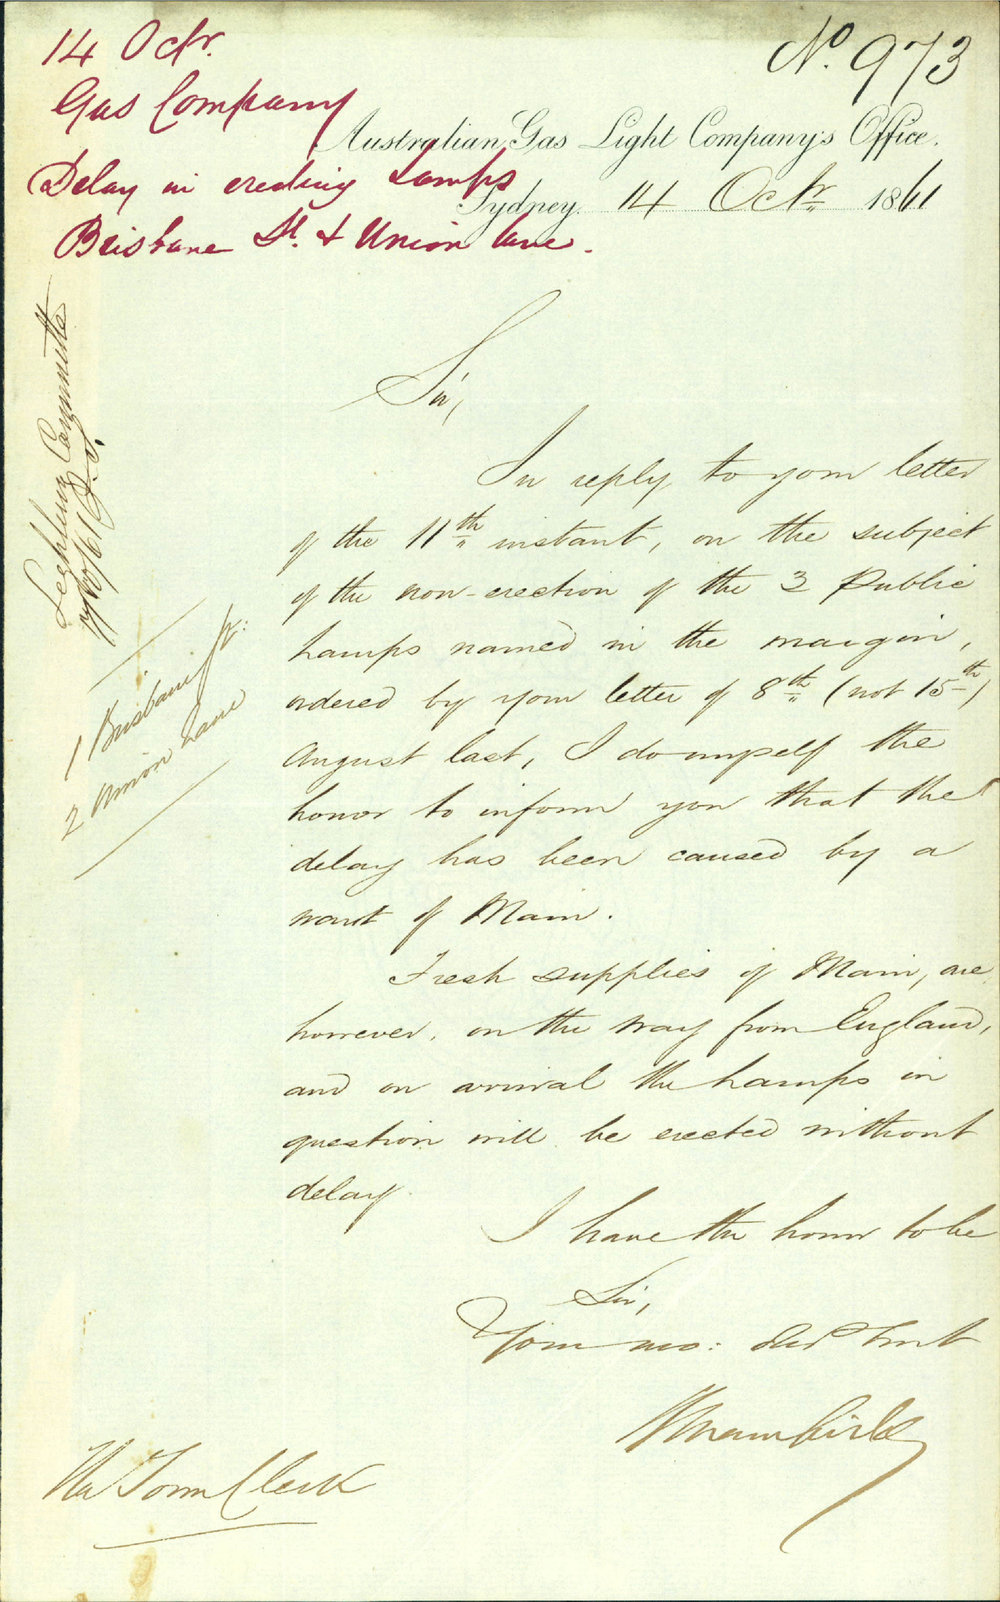 14 Octr.
Gas Company
Delay in erecting Lamps
Brisbane St. & Union Lane.
No. 973
Australian Gas Light Company's Office.
Sydney. 14 Octr. 1861
Lighting Committee
17/10/61
1 Brisbane St:
2 Union Lane
Sir,
In reply to your letter
of the 11th instant, on the subject
of the non-erection of the 3 Public
Lamps named in the margin,
ordered by your letter of 8th (not 15th)
August last, I do myself the
honor to inform you that the
delay has been caused by a
want of Main.
Fresh supplies of Main, are
however, on the way from England,
and on arrival the Lamps in
question will be erected without
delay.
I have the honor to be
Sir,
Your mo: obed Servt
The Town Clerk